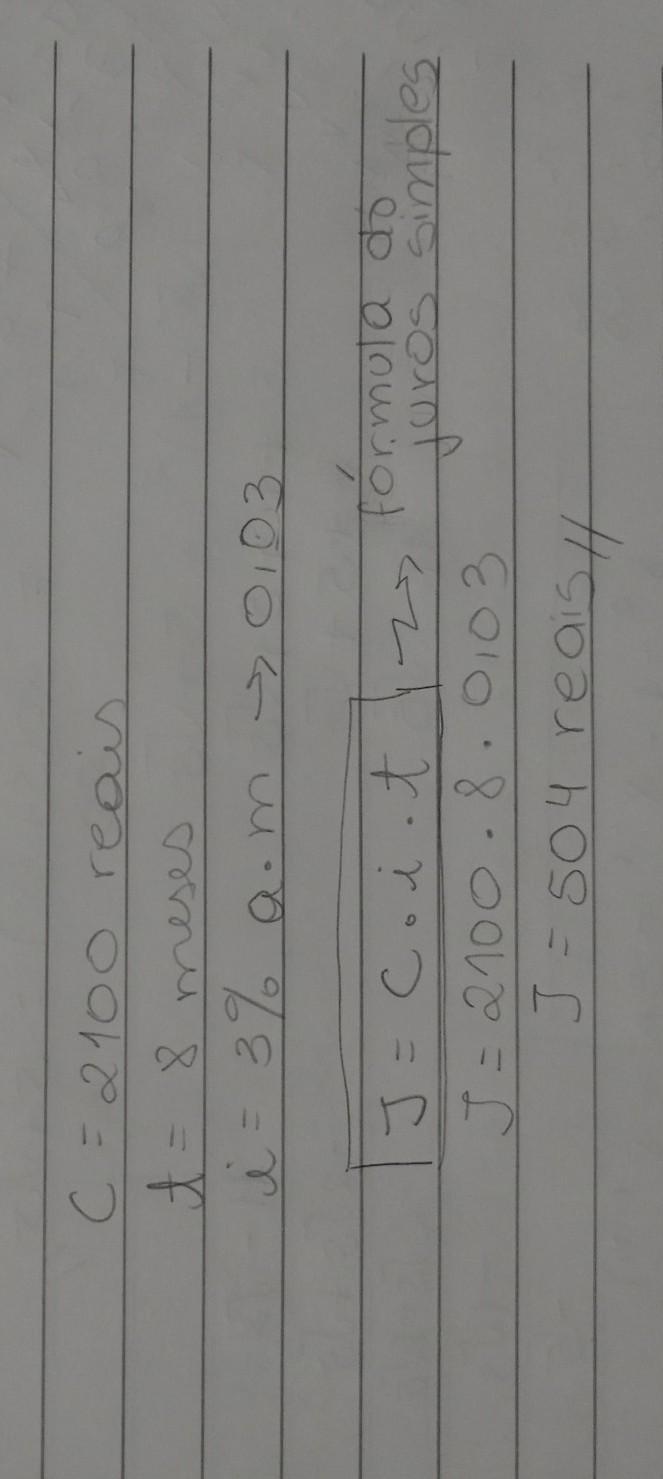 C = 2100 reais
t = 8 meses
i = 3% a.m → 0,03
J = C . i . t → fórmula do
juros simples
J = 2100 . 8 . 0,03
J = 504 reais //